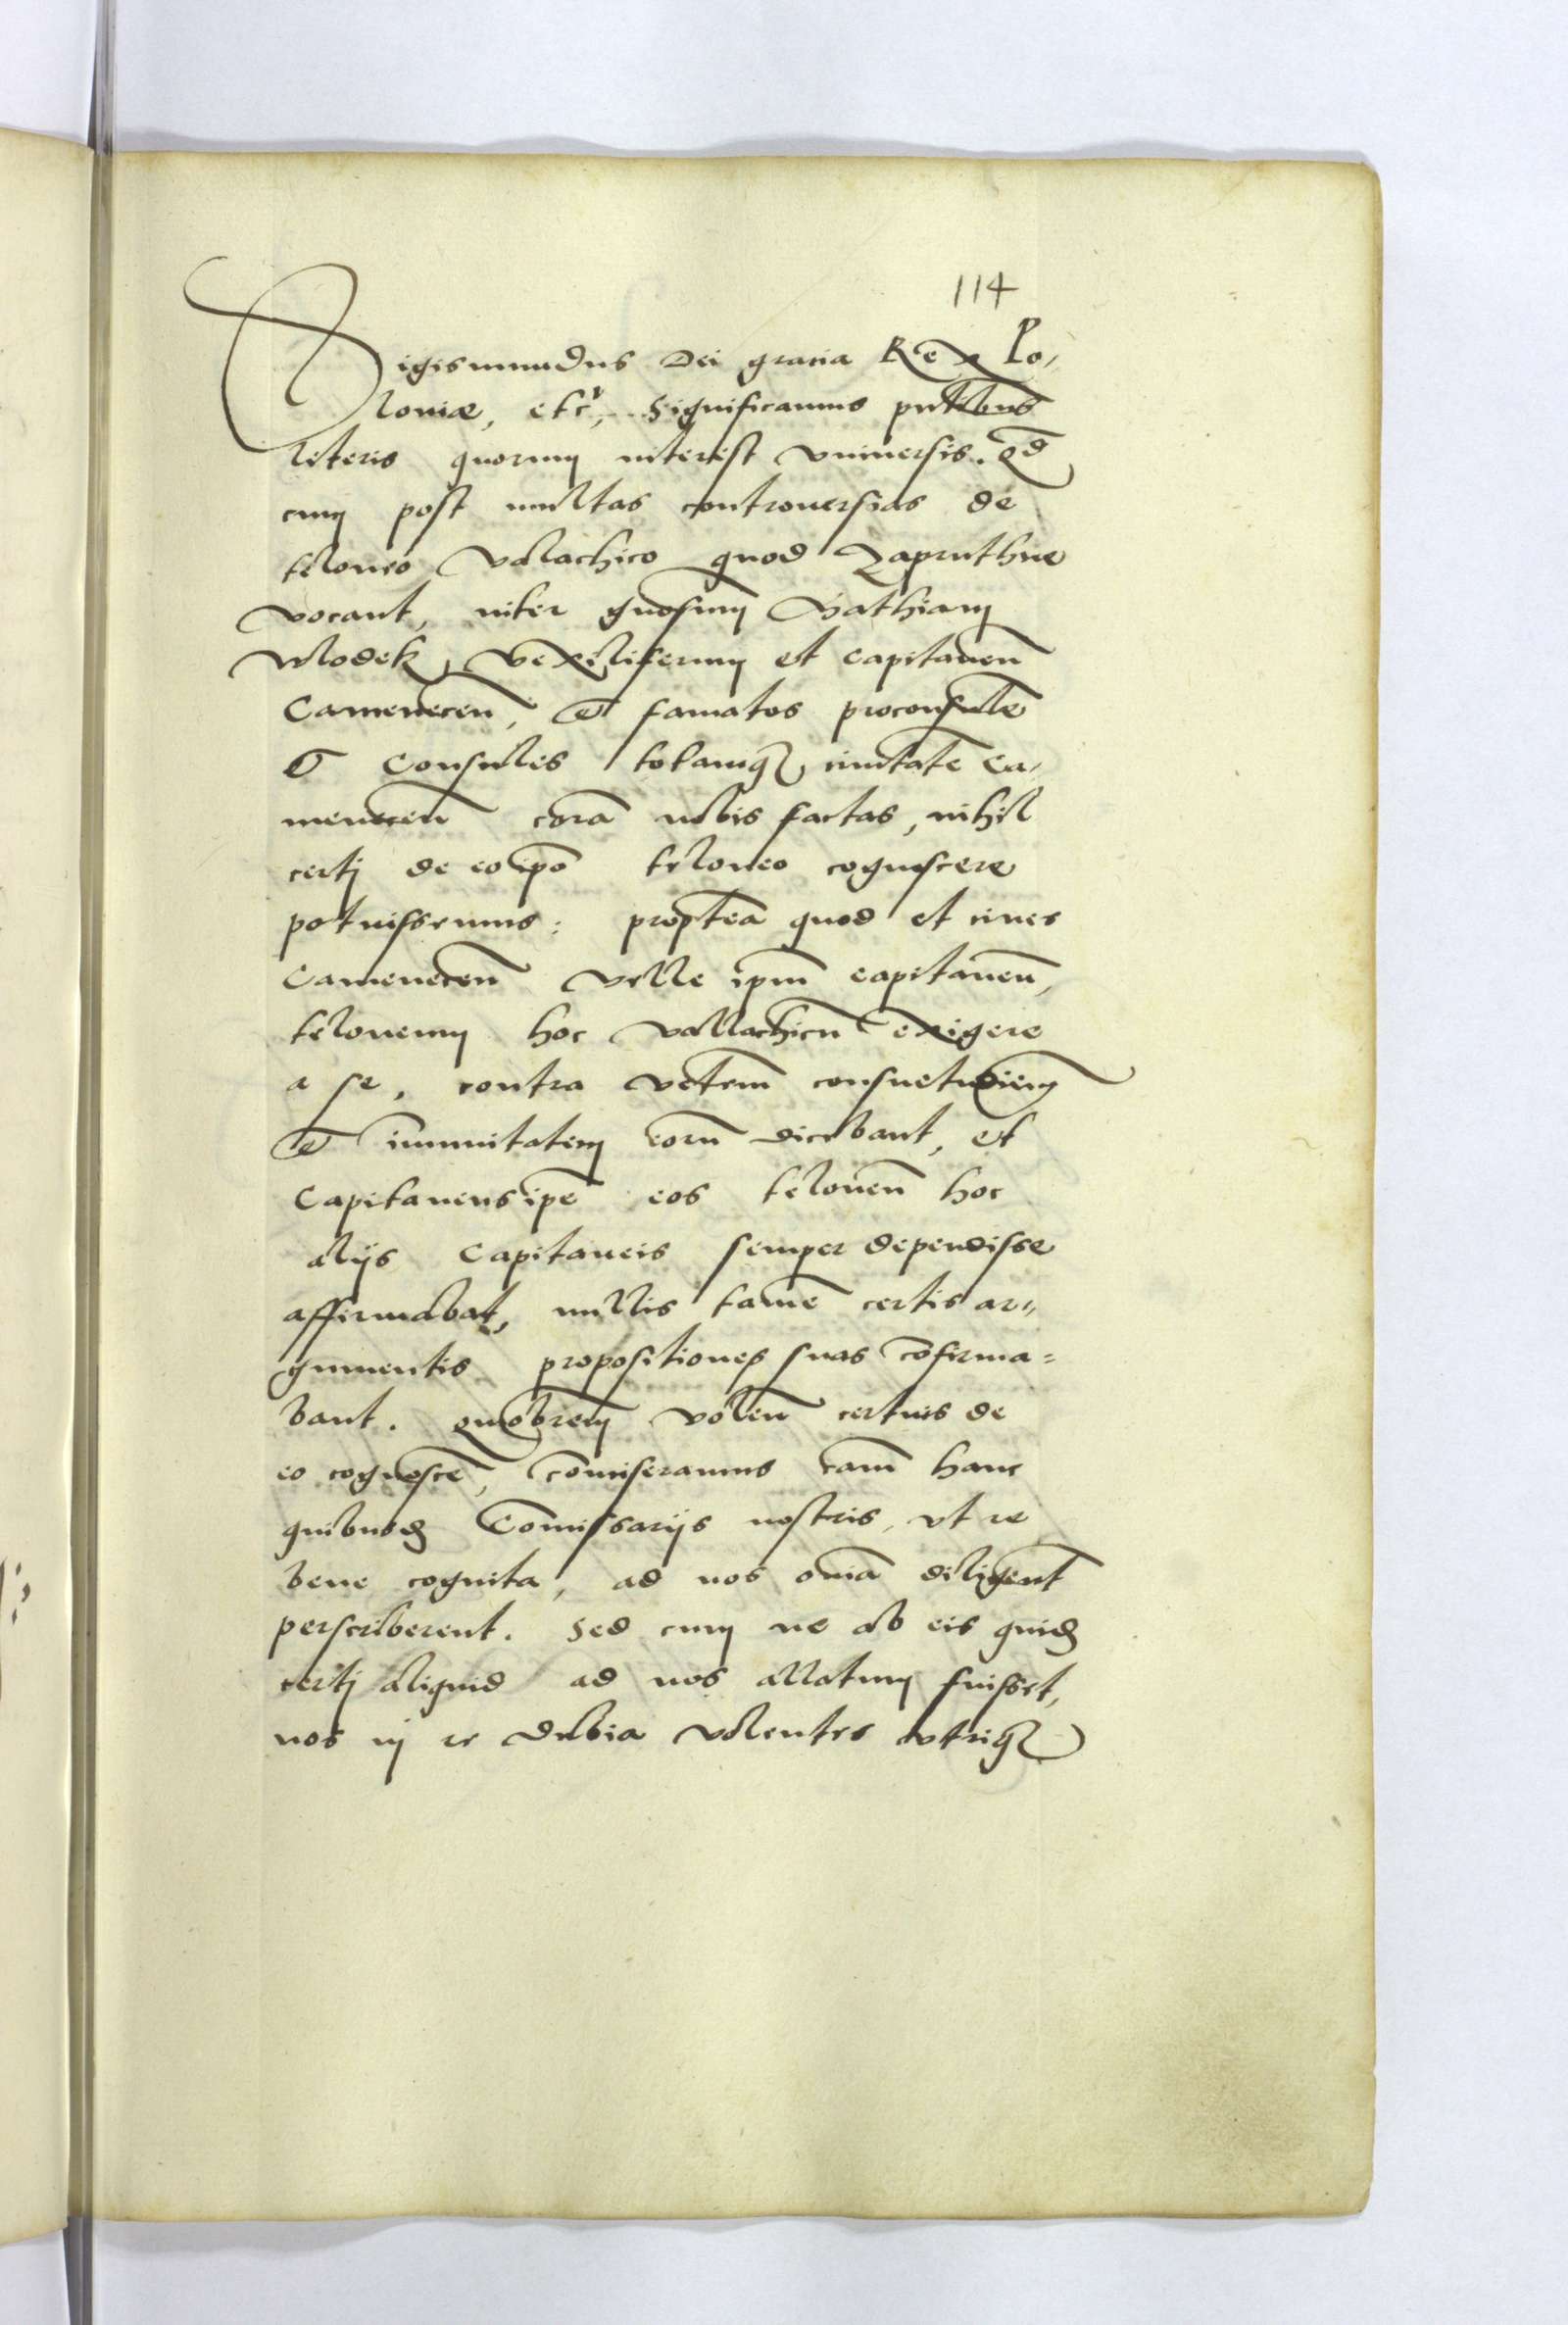 114
Sigismundus Dei gracia Rex Po,
loniæ, etc, Significamus pntibus
literis quorum interest vniuersis. Qd
cum post multas controuersias de
teloneo Valachico quod Zapruthne
vocant, inter gnosum Mathiam
Wlodek, Vexiliferum et capitaneū
Camenecen̄, et famatos proconsulē
et Consules totamq; ciuitatē Ca,
menecen̄ corā nobis factas, nihil
certi de eo ipō teloneo cognoscere
potuissemus: proptea quod et ciues
Camenecen̄ velle ipm̄ capitaneū,
teloneum hoc vallachicū exigere
a se, contra veterem consuetudiem
et immunitatem eorū dicebant, et
Capitaneus ipē eos teloneū hoc
alijs Capitaneis semper dependisse
affirmabat, nullis tamē certis ar,,
gumentis propositiones suas cōfirma=
bant. quobrem volen̄ certius de
eo cognoscē, cōmiseramus cam̄ hanc
quibusd Cōmissarijs nostris, vt re
bene cognita, ad nos om̄ia diligent
perscriberent. Sed cum ne ab eis quid
certi aliquid ad nos allatum fuisset,
nos in re dubia volentes vtriq;